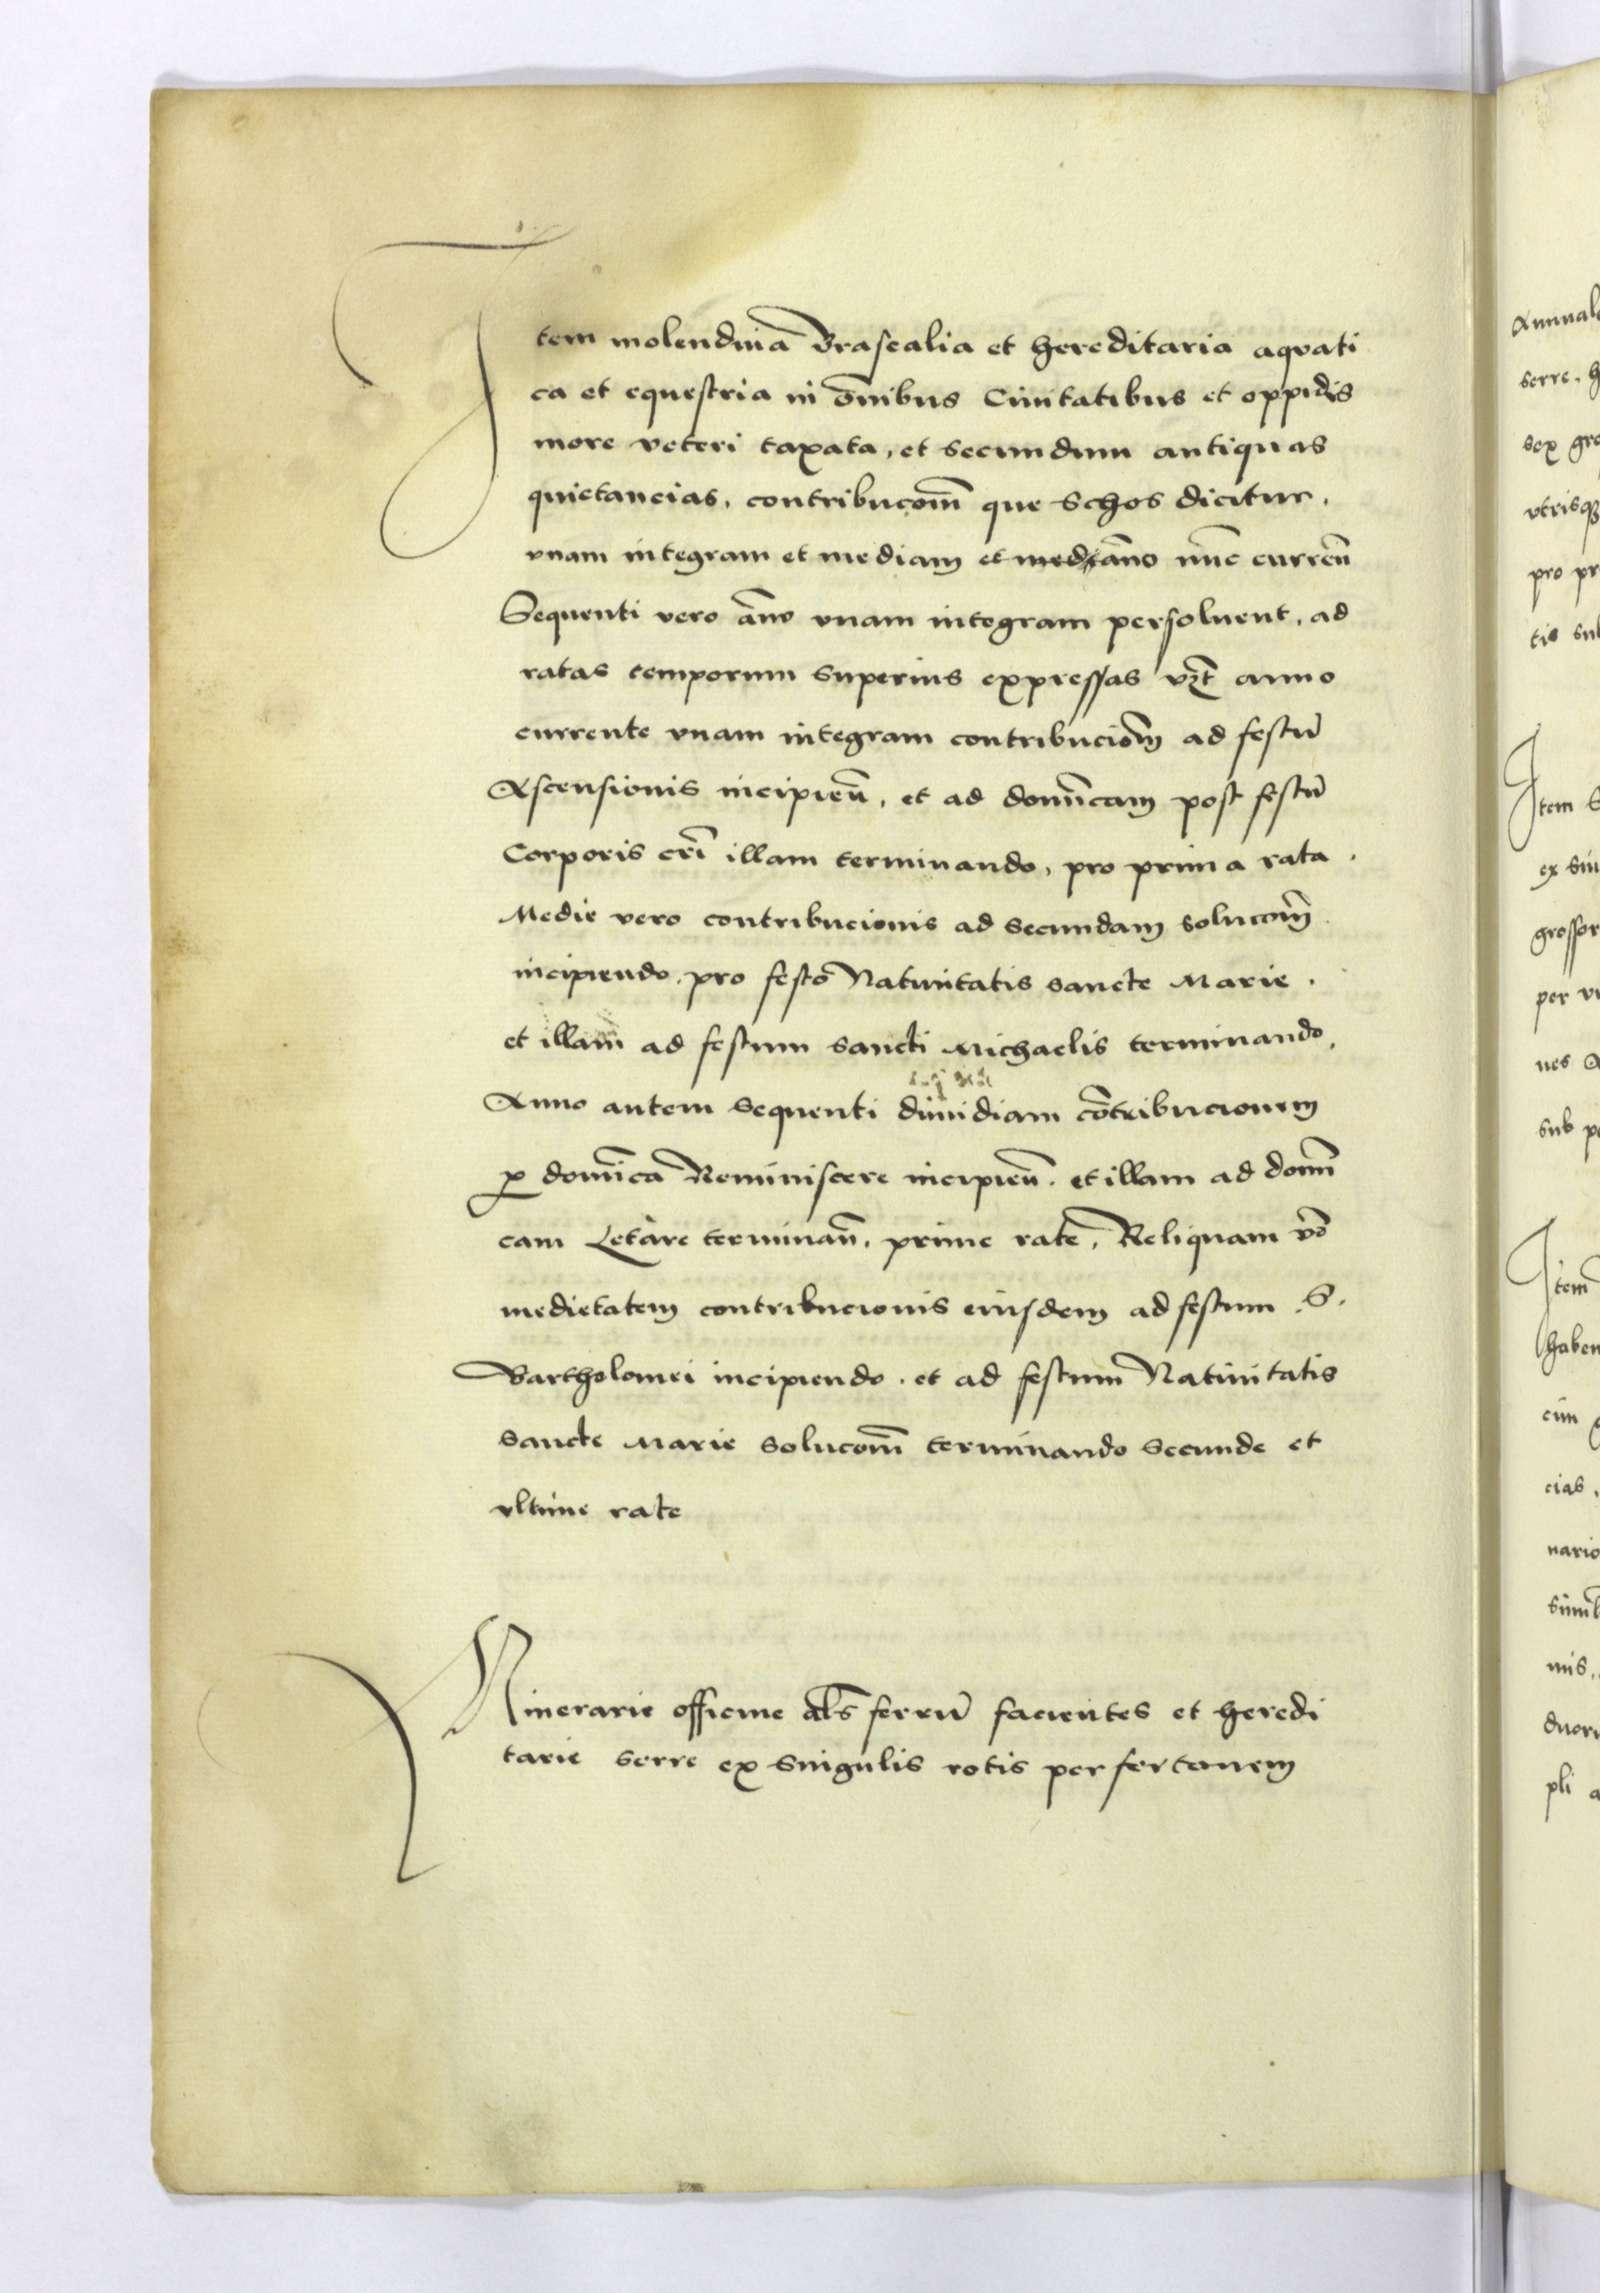 Item molendina Brasealia et hereditaria aquati
ca et equestria in om̄nibus Ciuitatibus et oppidis
more veteri taxata, et secundum antiquas
quietancias, contribucom̄ que Schos dicitur,
vnam integram et mediam et anno nūc currēn
Sequenti vero āno vnam integram persoluent, ad
ratas temporum superius expressas vzt anno
currente vnam integram contribuciom̄ ad festū
Ascensionis incipieñ, et ad domīcam post festū
Corporis cr̄i illam terminando, pro prima rata.
Medie vero contribucionis ad secundam solucom̄
incipiendo, pro festo Natiuitatis sancte Marie.
et illam ad festum sancti Michaelis terminando,
Anno autem sequenti dimidiam cōtribucionem
p domīca Reminiscere incipieñ. et illam ad domī
cam Letare terminañ, prime rate, Reliquam v̄o
medietatem contribucionis eiusdem ad festum .S.
Bartholomei incipiendo. et ad festum Natiuitatis
sancte Marie solucom̄ terminando secunde et
vltime rate
Minerarie officine al̄s ferrū facientes et heredi
tarie serre ex singulis rotis per fertonem
Annual
serre. h
sex gro
vtrisq
pro pr
tis sub
Item S
ex sin
grossor
per vn
nes A
sub p
Item
haben
cim
cias,
nario
simil
mis,
duoru
pli a